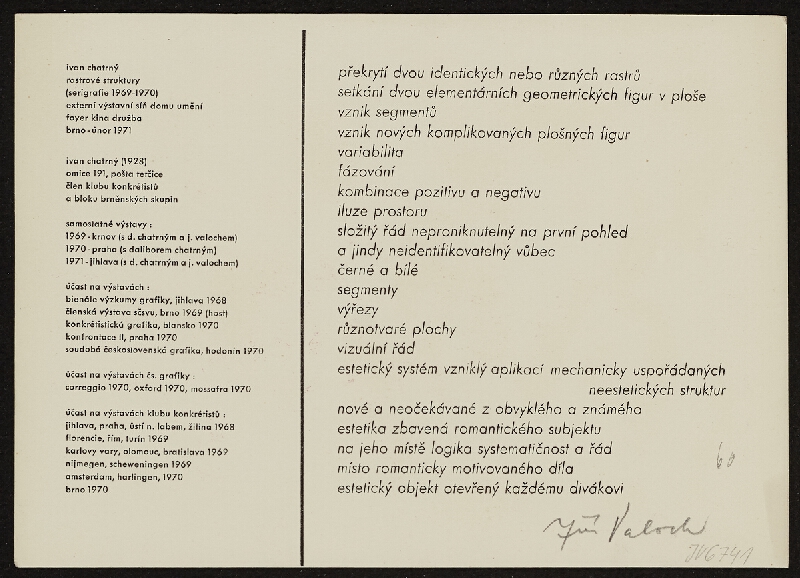 ivan chatrný
rastrové struktury
(serigrafie 1969-1970)
externí výstavní síň domu umění
foyer kina družba
brno-únor 1971
ivan chatrný (1928)
omice 191, pošta tetčice
člen klubu konkrétistů
a bloku brněnských skupin
samostatné výstavy :
1969-krnov (s d. chatrným a j. valochem)
1970-praha (s daliborem chatrným)
1971-jihlava (s d. chatrným a j. valochem)
účast na výstavách :
bienále výzkumy grafiky, jihlava 1968
členská výstava sčsvu, brno 1969 (host)
konkrétistická grafika, blansko 1970
konfrontace II, praha 1970
soudobá československá grafika, hodonín 1970
účast na výstavách čs. grafiky :
correggio 1970, oxford 1970, massafra 1970
účast na výstavách klubu konkrétistů :
jihlava, praha, ústí n. labem, žilina 1968
florencie, řím, turín 1969
karlovy vary, olomouc, bratislava 1969
nijmegen, scheweningen 1969
amsterdam, harlingen, 1970
brno 1970
překrytí dvou identických nebo různých rastrů
setkání dvou elementárních geometrických figur v ploše
vznik segmentů
vznik nových komplikovaných plošných figur
variabilita
fázování
kombinace pozitivu a negativu
iluze prostoru
složitý řád neproniknutelný na první pohled
a jindy neidentifikovatelný vůbec
černé a bílé
segmenty
výřezy
různotvaré plochy
vizuální řád
estetický systém vzniklý aplikací mechanicky uspořádaných
neestetických struktur
nové a neočekávané z obvyklého a známého
estetika zbavená romantického subjektu
na jeho místě logika systematičnost a řád
místo romanticky motivovaného díla
estetický objekt otevřený každému divákovi
Jiří Valoch